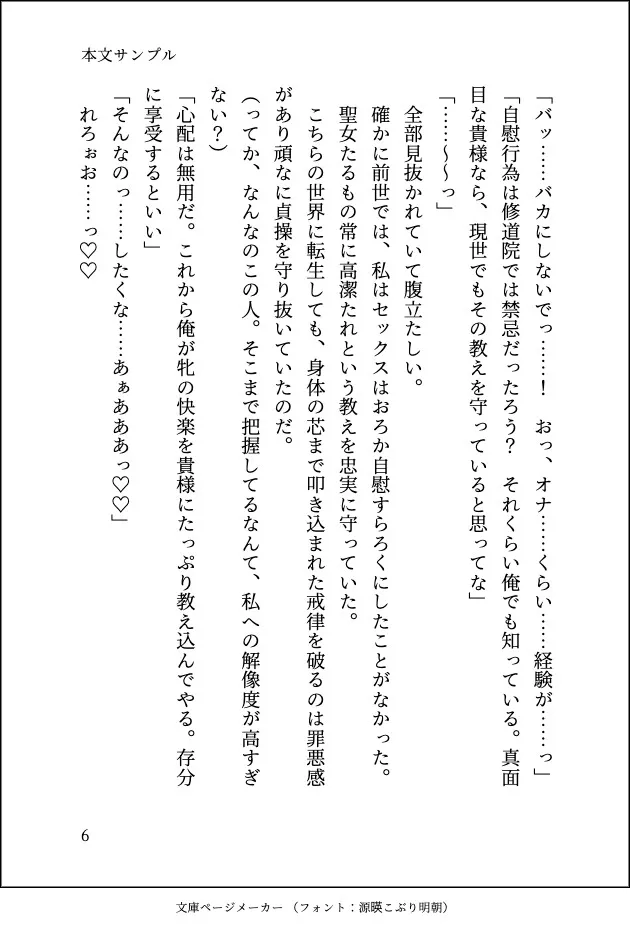 本文サンプル
「バッ……バカにしないでっ……！　おっ、オナ……くらい……経験が……っ」
「自慰行為は修道院では禁忌だったろう？　それくらい俺でも知っている。真面
目な貴様なら、現世でもその教えを守っていると思ってな」
「……～～っ」
全部見抜かれていて腹立たしい。
確かに前世では、私はセックスはおろか自慰すらろくにしたことがなかった。
聖女たるもの常に高潔たれという教えを忠実に守っていた。
こちらの世界に転生しても、身体の芯まで叩き込まれた戒律を破るのは罪悪感
があり頑なに貞操を守り抜いていたのだ。
（ってか、なんなのこの人。そこまで把握してるなんて、私への解像度が高すぎ
ない？）
「心配は無用だ。これから俺が牝の快楽を貴様にたっぷり教え込んでやる。存分
に享受するといい」
「そんなのっ……したくな……あぁあああっ♡♡」
れろぉお……っ♡♡
6
文庫ページメーカー（フォント：源暎こぶり明朝）